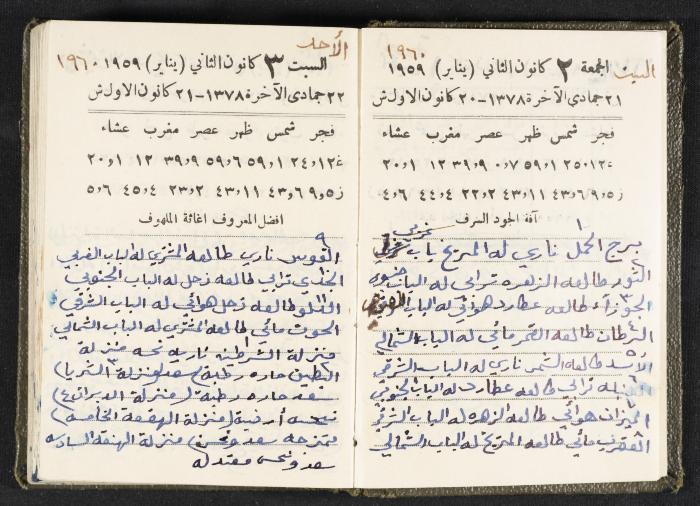 ١٩٦٠
السبت
الجمعة ٢ كانون الثاني (يناير) ١٩٥٩
٢١ جمادى الآخرة ١٣٧٨ - ٢٠ كانون الاول ش
فجر شمس ظهر عصر مغرب عشاء
آفة الجود السرف
١
برج الحمل ناري له المريخ باب غربي
الثور طالعه الزهره ترابي له الباب جنوبي
الجوزاء طالعه عطارد هوائي له الباب
السرطان طالعه القمر مائي له الباب الشمالي
الأسد طالعه الشمس ناري له الباب الشرقي
السنبله ترابي طالعه عطارد له الباب الجنوبي
الميزان هوائي طالعه الزهره له الباب الشرقي
العقرب مائي طالعه المريخ له الباب الشمالي
الأحد
السبت ٣ كانون الثاني (يناير) ١٩٥٩ ١٩٦٠
٢٢ جمادى الآخرة ١٣٧٨ - ٢١ كانون الاول ش
فجر شمس ظهر عصر مغرب عشاء
افضل المعروف اغاثة الملهوف
٩
القوس ناري طالعه المشتري له الباب الغربي
الجدي ترابي طالعه زحل له الباب الجنوبي
الدلو طالعه زحل هوائي له الباب الشرقي
الحوت مائي طالعه المشتري له الباب الشمالي
منزلة الشرطين ناريه نحسه منزلة
البطين حاره رطبة سعد منزلة الثريا
سعد حاره رطبة منزلة الدبران ٤
نحسه أرضية منزلة الهقعة الخامسة
ممتزجه سعد ونحس منزلة الهنعة السادسه
سعد ونحس معتدله